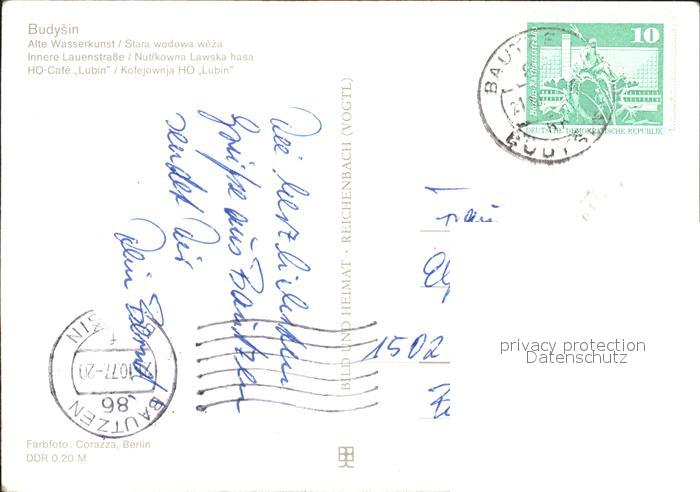 Budyšin
Alte Wasserkunst / Stara wodowa wěža
Innere Lauenstraße / Nutřkowna Lawska hasa
HO-Café „Lubin" / Kofejownja HO „Lubin"
Die herzlichsten
Grüße aus Bautzen
sendet Dir
Dein Bernd
BILD UND HEIMAT · REICHENBACH (VOGTL)
10
DEUTSCHE DEMOKRATISCHE REPUBLIK
BUDYŠIN
Frau
1502
privacy protection
Datenschutz
.10.77-20
86
BAUTZEN
Farbfoto: Corazza, Berlin
DDR 0,20 M